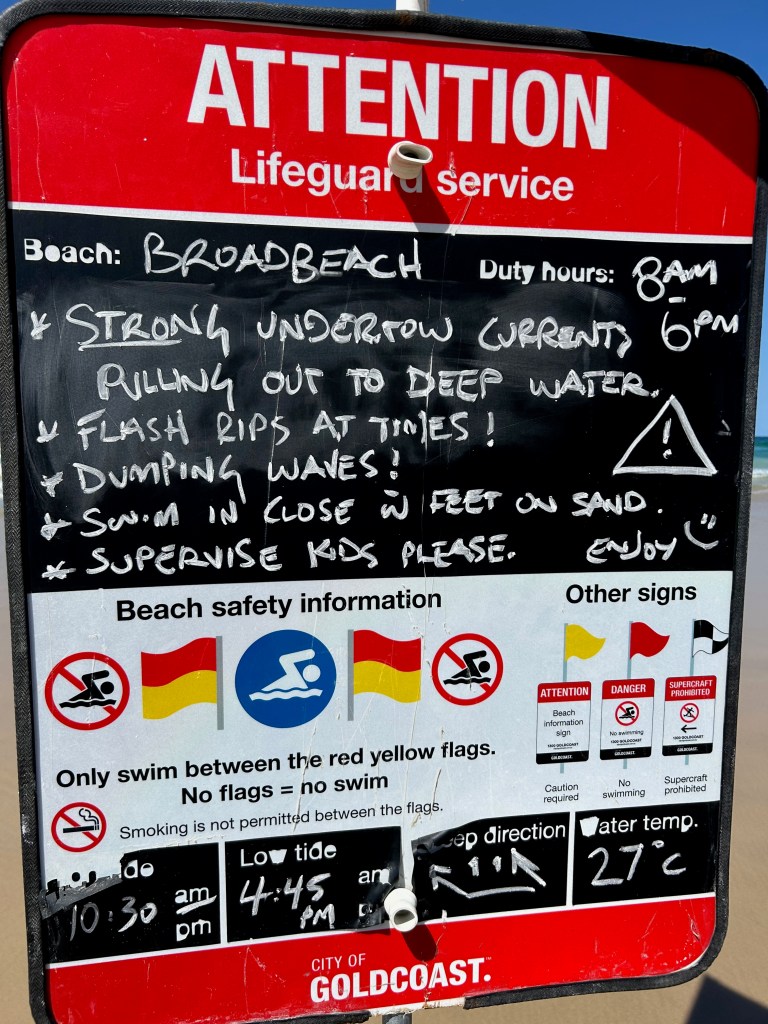 ATTENTION
Lifeguard service
Beach: BROADBEACH Duty hours: 8AM - 6PM
* STRONG UNDERTOW CURRENTS
PULLING OUT TO DEEP WATER.
* FLASH RIPS AT TIMES!
* DUMPING WAVES!
!
* SWIM IN CLOSE N FEET ON SAND.
* SUPERVISE KIDS PLEASE. ENJOY
Beach safety information
Other signs
ATTENTION
Beach
information
sign
GOLDCOAST.
DANGER
No swimming
GOLDCOAST.
SUPERCRAFT
PROHIBITED
GOLDCOAST.
Caution
required
No
swimming
Supercraft
prohibited
Only swim between the red yellow flags.
No flags = no swim
Smoking is not permitted between the flags.
de
10:30 am
pm
Low tide
4:45 PM am
ep direction
Water temp.
27°C
CITY OF
GOLDCOAST.